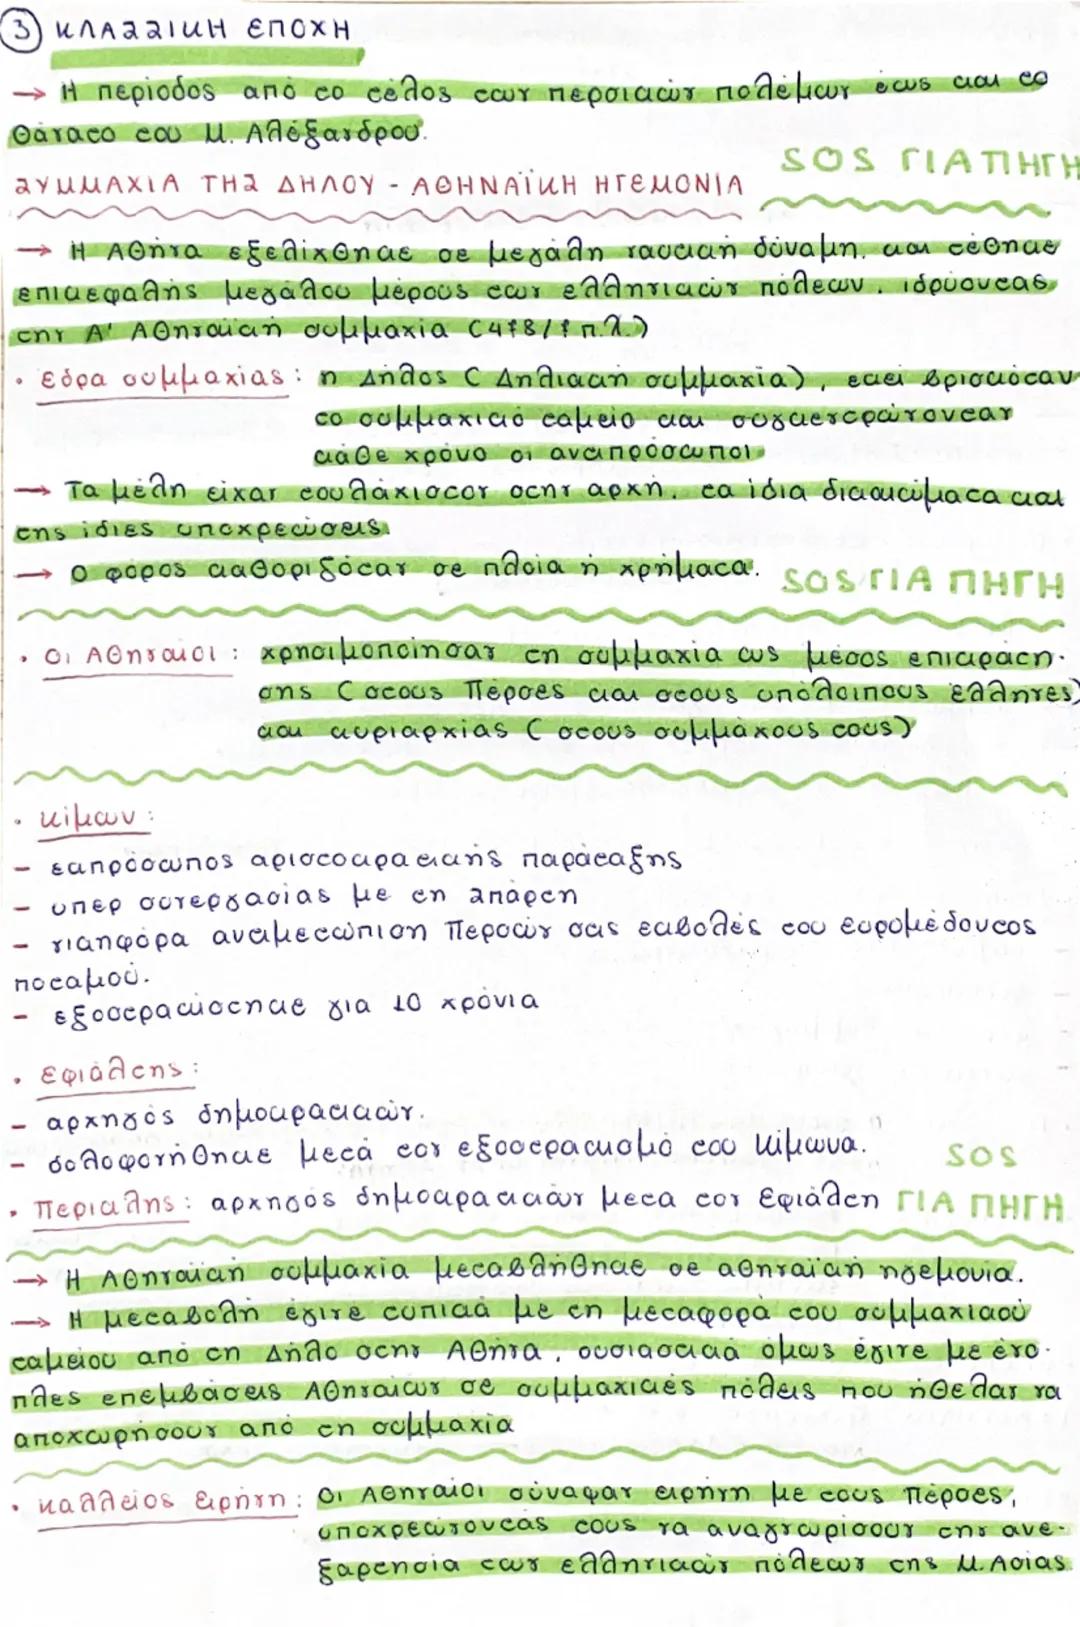 ③ ΚΛΑΣΣΙΚΗ ΕΠΟΧΗ
→ Η περίοδος από το τέλος των περσικών πολέμων έως και το
θάνατο του Μ. Αλέξανδρου.
SOS ΓΙΑ ΠΗΓΗ
ΣΥΜΜΑΧΙΑ ΤΗΣ ΔΗΛΟΥ - ΑΘΗΝΑΪΚΗ ΗΓΕΜΟΝΙΑ
→ Η Αθήνα εξελίχθηκε σε μεγάλη ναυτική δύναμη, και τέθηκε
επικεφαλής μεγάλου μέρους των ελληνικών πόλεων, ιδρύοντας
την Α' Αθηναϊκή συμμαχία (478/7 π.Χ.)
• Έδρα συμμαχίας: η Δήλος (Δηλιακή συμμαχία), εκεί βρισκόταν
το συμμαχικό ταμείο και συγκεντρώνονταν
κάθε χρόνο οι αντιπρόσωποι
→ Τα μέλη είχαν τουλάχιστον στην αρχή, τα ίδια δικαιώματα και
της ίδιες υποχρεώσεις.
→ Ο φόρος καθοριζόταν σε πλοία ή χρήματα. SOS ΓΙΑ ΠΗΓΗ
• Οι Αθηναίοι: χρησιμοποίησαν τη συμμαχία ως μέσος επικράτη-
σης (στους Πέρσες και στους υπόλοιπους Έλληνες)
και κυριαρχίας (στους συμμάχους τους)
• Κίμων:
- εκπρόσωπος αριστοκρατικής παράταξης
- υπέρ συνεργασίας με τη Σπάρτη
- νικηφόρα αντιμετώπιση Περσών στις εκβολές του Ευρυμέδοντος
ποταμού.
- εξοστρακίστηκε για 10 χρόνια
• Εφιάλτης:
- αρχηγός δημοκρατικών.
- δολοφονήθηκε μετά τον εξοστρακισμό του Κίμωνα. SOS
• Περικλής: αρχηγός δημοκρατικών μετά τον Εφιάλτη ΓΙΑ ΠΗΓΗ
→ Η Αθηναϊκή συμμαχία μεταβλήθηκε σε αθηναϊκή ηγεμονία.
→ Η μεταβολή έγινε τυπικά με τη μεταφορά του συμμαχικού
ταμείου από τη Δήλο στην Αθήνα, ουσιαστικά όμως έγινε με ένο-
πλες επεμβάσεις Αθηναίων σε συμμαχικές πόλεις που ήθελαν να
αποχωρήσουν από τη συμμαχία
• Καλλείος Ειρήνη: Οι Αθηναίοι σύναψαν ειρήνη με τους Πέρσες,
υποχρεώνοντας τους να αναγνωρίσουν την ανε-
ξαρτησία των ελληνικών πόλεων της Μ. Ασίας.